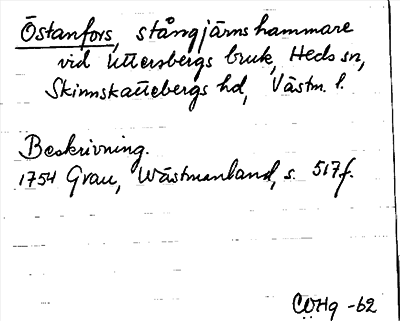 Östanfors, stångjärnshammare
vid Uttersbergs bruk, Heds sn,
Skinnskattebergs hd, Västm. l.
Beskrivning.
1754 Grau, Wästmanland, s. 517f.
CWHg -62